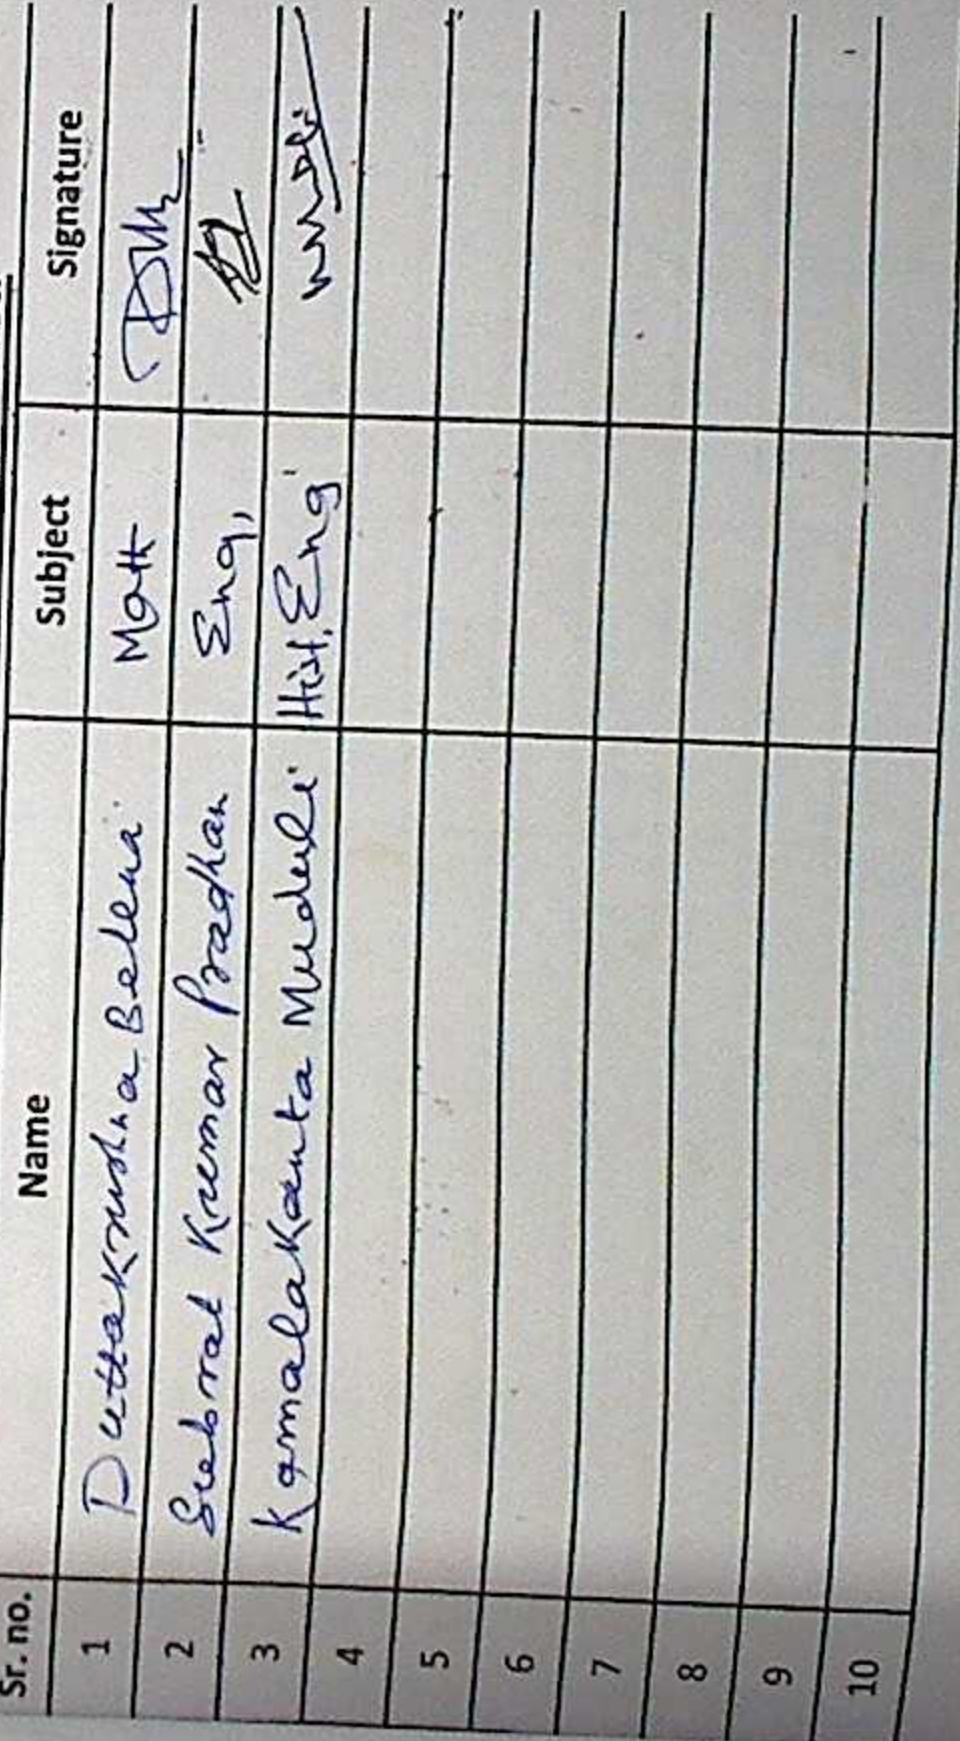 Sr. no. Name Subject Signature
1 Duttakrushna Behera Math
2 Subrat Kumar Pradhan Eng,
3 Kamalakanta Muduli Hist, Eng
4
5
6
7
8
9
10